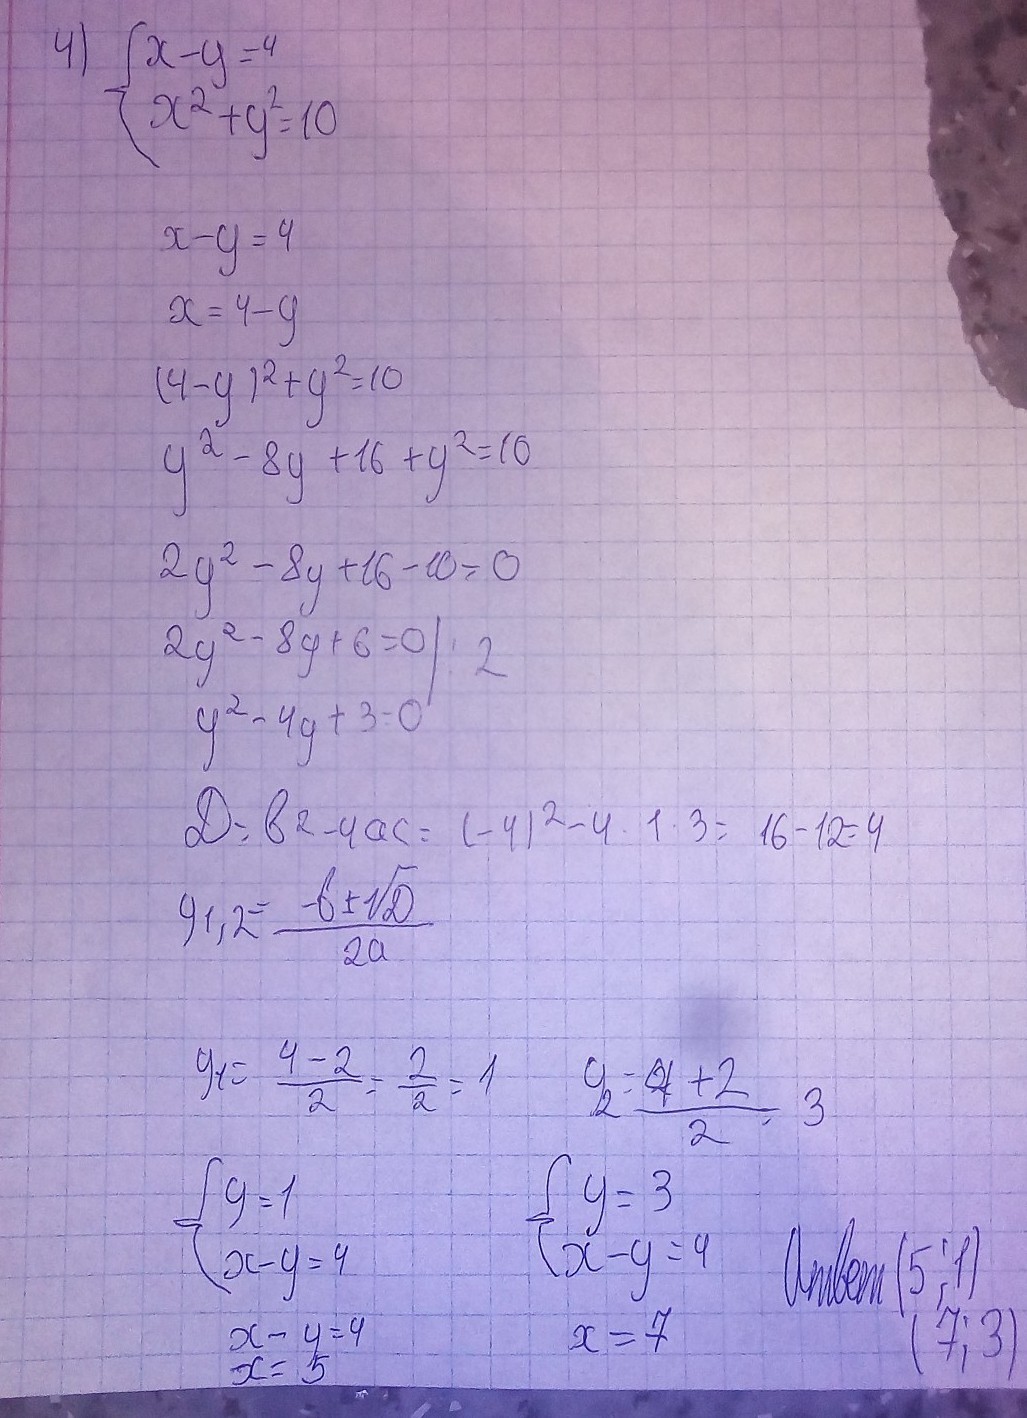 4) { x-y=4
x²+y²=10
x-y=4
x=4-y
(4-y)²+y²=10
y²-8y+16+y²=10
2y²-8y+16-10=0
2y²-8y+6=0 |:2
y²-4y+3=0
D=b²-4ac=(-4)²-4·1·3=16-12=4
y1,2= (-b±√D)/2a
y1= (4-2)/2 = 2/2 = 1 y2= (4+2)/2 = 3
{ y=1 { y=3
x-y=4 x-y=4 Ответ (5;1)
x-y=4 x=7 (7;3)
x=5